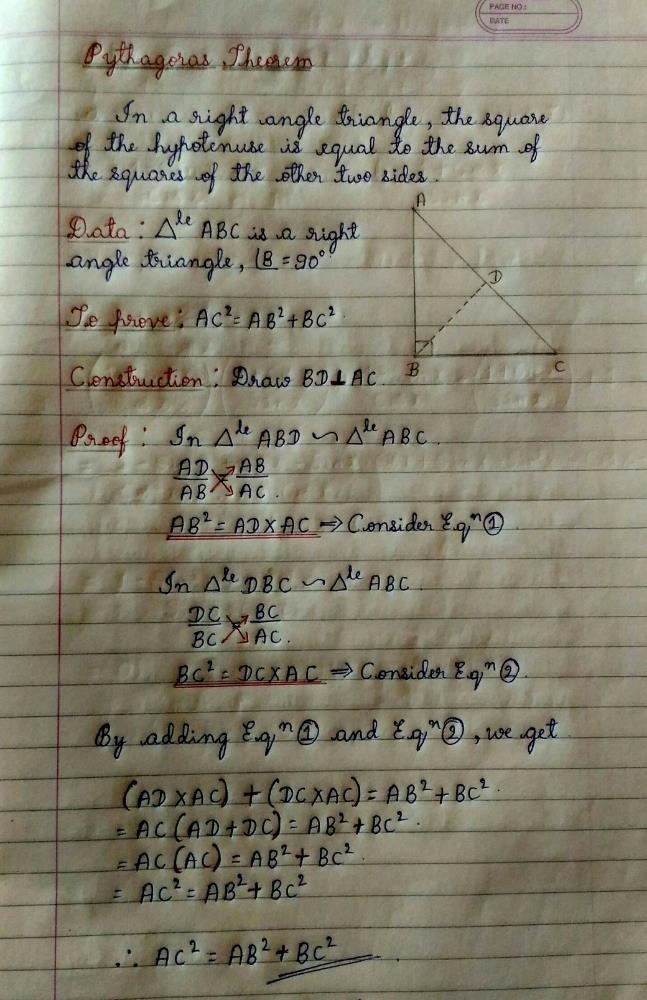 PAGE NO.:
DATE
Pythagoras Theorem
In a right angle triangle, the square
of the hypotenuse is equal to the sum of
the squares of the other two sides.
Data : Δˡᵉ ABC is a right
angle triangle, ∠B = 90°
To prove : AC² = AB² + BC²
Construction : Draw BD ⊥ AC.
A
D
B
C
Proof : In Δˡᵉ ABD ∽ Δˡᵉ ABC.
AD/AB = AB/AC.
AB² = AD × AC ⇒ Consider Eqⁿ ①
In Δˡᵉ DBC ∽ Δˡᵉ ABC.
DC/BC = BC/AC.
BC² = DC × AC ⇒ Consider Eqⁿ ②.
By adding Eqⁿ ① and Eqⁿ ②, we get
(AD × AC) + (DC × AC) = AB² + BC².
= AC (AD + DC) = AB² + BC².
= AC (AC) = AB² + BC².
= AC² = AB² + BC²
∴ AC² = AB² + BC².